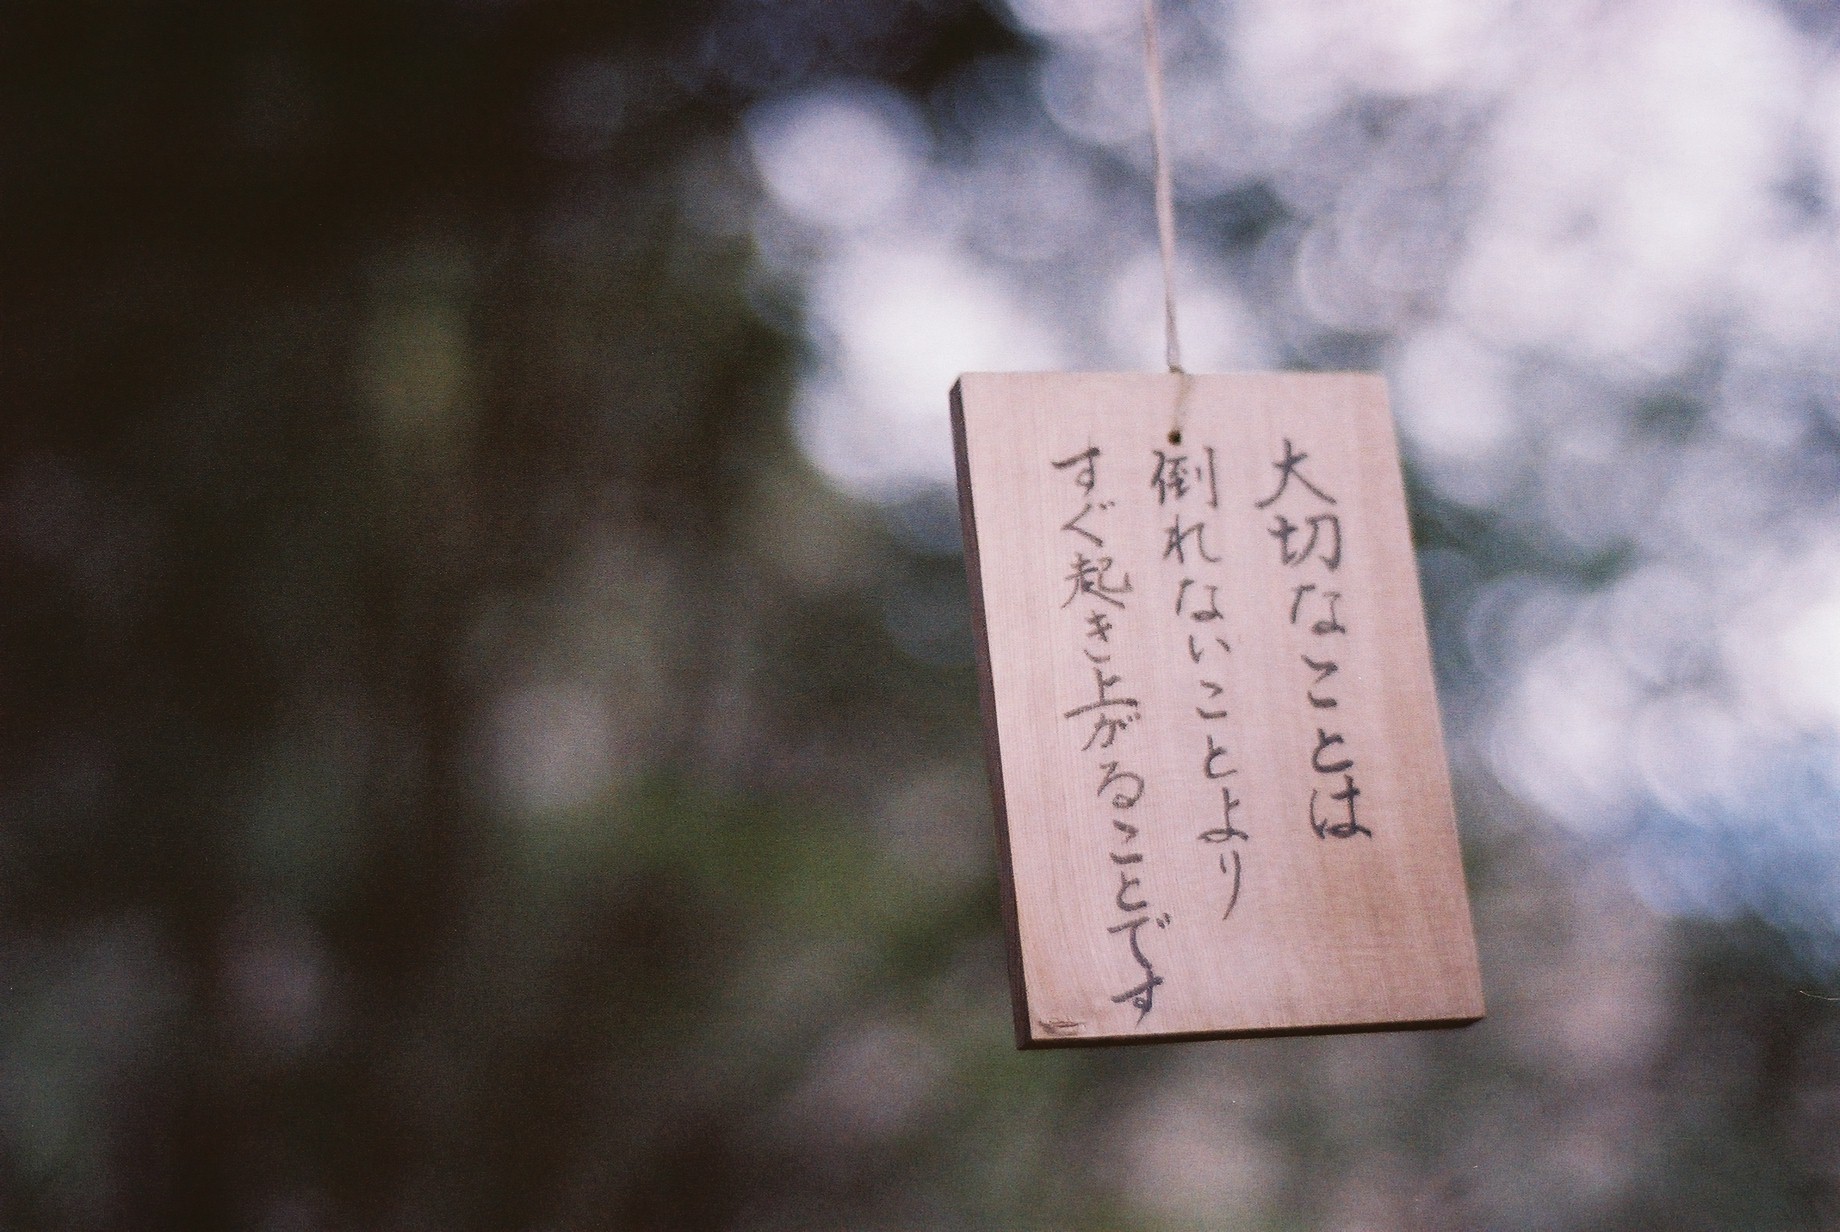 大切なことは
倒れないことより
すぐ起き上がることです